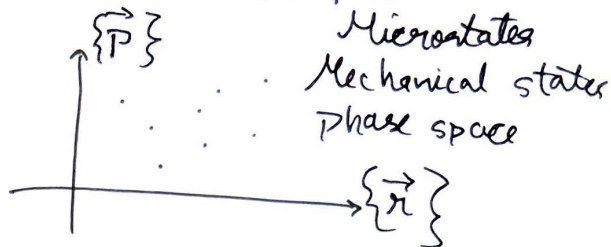 {P⃗}
Microstates
Mechanical states
Phase space
{r⃗}